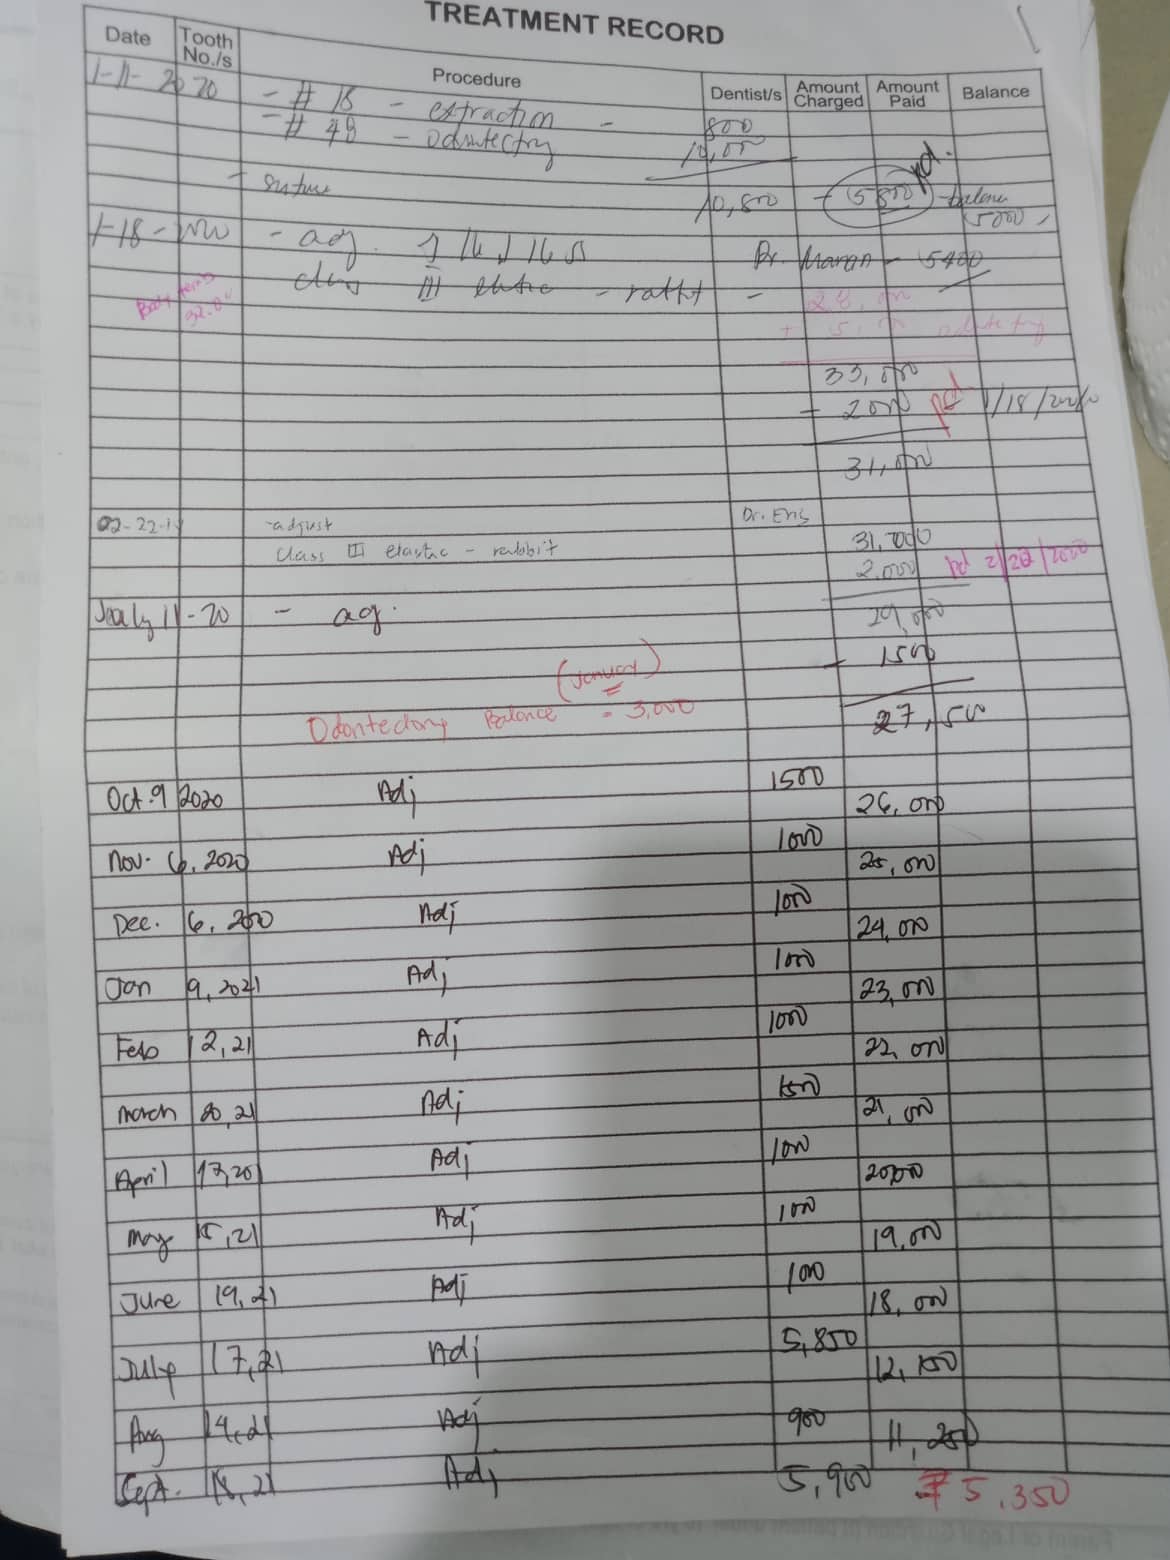 TREATMENT RECORD
Date Tooth No./s Procedure Dentist/s Amount Charged Amount Paid Balance
1-11-2020 - # 18 - extraction - 800
- # 48 - odontectmy 10,000
- suture 10,800 - 5800 pd. - balance 5000
1-18-2020 - adj. 16 16 Dr. - 5400
class III elastic - rabbit - 28,000
Body temp 32.0° + 5,000 odontectmy
33,000
- 2000 pd 1/18/2020
31,000
02-22-19 - adjust Dr. Eris
class III elastic - rabbit 31,000
2,000 pd 2/22/2020
July 11-20 - adj. 29,000
- 1500
(January)
Odontectomy Balance = 3,000 27,500
Oct. 9 2020 Adj 1500
26,000
Nov. 6, 2020 Adj 1000
25,000
Dec. 6, 2020 Adj 1000
24,000
Jan 9, 2021 Adj 1000
23,000
Feb 12, 21 Adj 1000
22,000
March 20, 21 Adj
21,000
April 17, 20 Adj 1000
20,000
May 15, 21 Adj 1000
19,000
June 19, 21 Adj 1000
18,000
July 17, 21 Adj 5,850
12,150
Aug 14, 21 Adj 900
11,250
Sept. 18, 21 Adj 5,900 ₱ 5,350